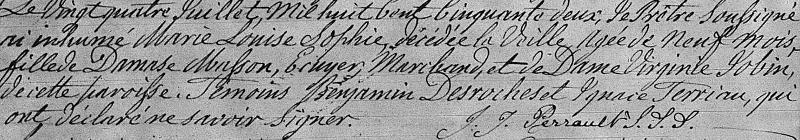 Le Vingt quatre Juillet, Mil huit Cent Cinquante deux, Je Prêtre Soussigné
ai inhumé Marie Louise Sophie, décédée la Veille, Agée de Neuf Mois,
fille de Damase Masson, Ecuyer, Marchand, et de Dame Virginie Jobin,
de cette paroisse. Témoins Benjamin Desroches et Ignace Terriau, qui
ont déclaré ne savoir signer
J. J. Perrault S.S.S.